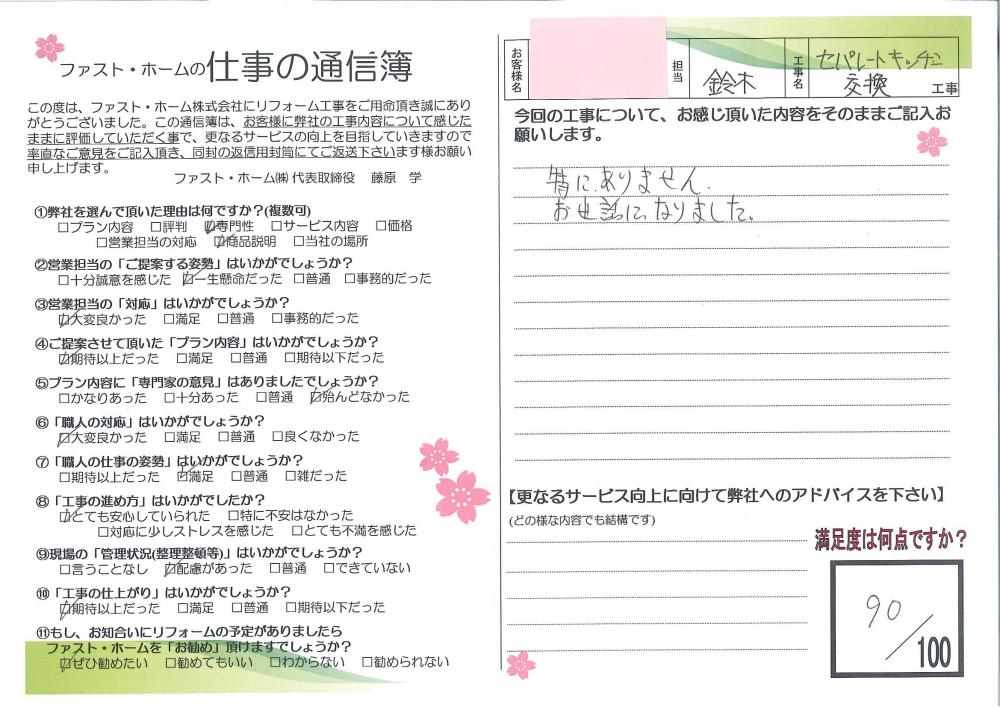 ファスト・ホームの仕事の通信簿
この度は、ファスト・ホーム株式会社にリフォーム工事をご用命頂き誠にあり
がとうございました。この通信簿は、お客様に弊社の工事内容について感じた
ままに評価していただく事で、更なるサービスの向上を目指していきますので
率直なご意見をご記入頂き、同封の返信用封筒にてご返送下さいます様お願い
申し上げます。
ファスト・ホーム㈱ 代表取締役 藤原 学
①弊社を選んで頂いた理由は何ですか?(複数可)
□プラン内容 □評判 ☑専門性 □サービス内容 □価格
□営業担当の対応 ☑商品説明 □当社の場所
②営業担当の「ご提案する姿勢」はいかがでしょうか?
□十分誠意を感じた ☑一生懸命だった □普通 □事務的だった
③営業担当の「対応」はいかがでしょうか?
☑大変良かった □満足 □普通 □事務的だった
④ご提案させて頂いた「プラン内容」はいかがでしょうか?
☑期待以上だった □満足 □普通 □期待以下だった
⑤プラン内容に「専門家の意見」はありましたでしょうか?
□かなりあった □十分あった □普通 ☑殆んどなかった
⑥「職人の対応」はいかがでしょうか?
☑大変良かった □満足 □普通 □良くなかった
⑦「職人の仕事の姿勢」はいかがでしょうか?
□期待以上だった ☑満足 □普通 □雑だった
⑧「工事の進め方」はいかがでしたか?
☑とても安心していられた □特に不安はなかった
□対応に少しストレスを感じた □とても不満を感じた
⑨現場の「管理状況(整理整頓等)」はいかがでしょうか?
□言うことなし ☑配慮があった □普通 □できていない
⑩「工事の仕上がり」はいかがでしょうか?
☑期待以上だった □満足 □普通 □期待以下だった
⑪もし、お知合いにリフォームの予定がありましたら
ファスト・ホームを「お勧め」頂けますでしょうか?
☑ぜひ勧めたい □勧めてもいい □わからない □勧められない
お客様名 担当 鈴木 工事名 セパレートキッチン
交換 工事
今回の工事について、お感じ頂いた内容をそのままご記入お
願いします。
特にありません.
お世話になりました。
【更なるサービス向上に向けて弊社へのアドバイスを下さい】
(どの様な内容でも結構です)
満足度は何点ですか?
90/100